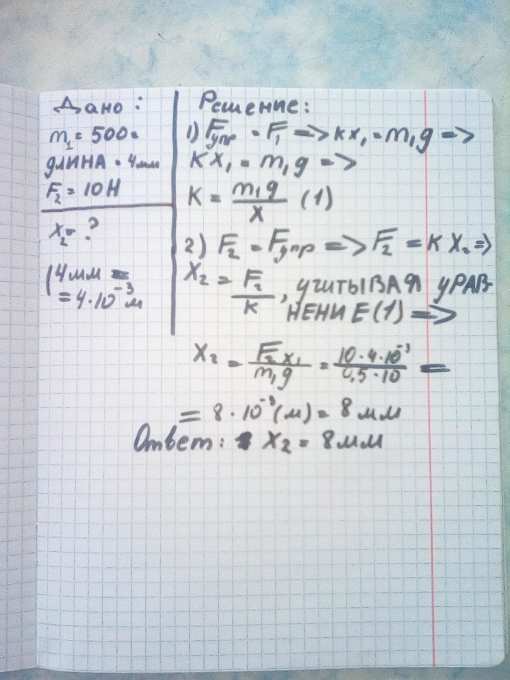 Дано:
m₁ = 500г
длина = 4мм
F₂ = 10 Н
X₂ = ?
(4мм =
= 4·10⁻³ м
Решение:
1) Fупр = F₁ => кx₁ = m₁g =>
Kx₁ = m₁g =>
K = m₁g/X (1)
2) F₂ = Fупр => F₂ = К X₂ =>
X₂ = F₂/к, учитывая урав
нение (1) =>
X₂ = F₂x₁/m₁g = 10·4·10⁻³/0,5·10 =
= 8·10⁻³(м) = 8 мм
Ответ: X₂ = 8мм